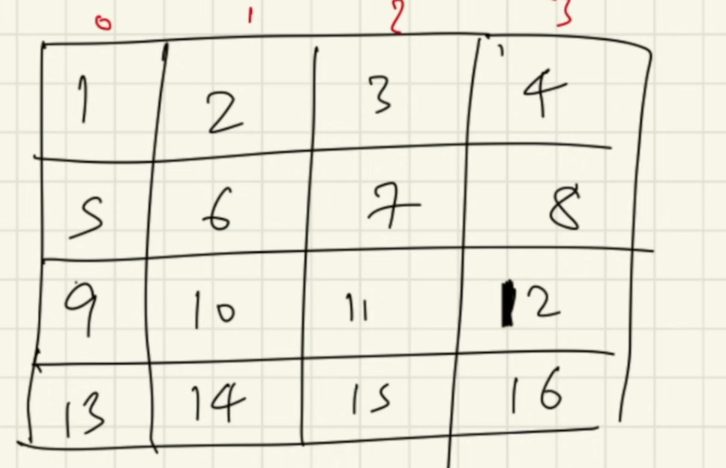 0 1 2 3
1 2 3 4
5 6 7 8
9 10 11 12
13 14 15 16